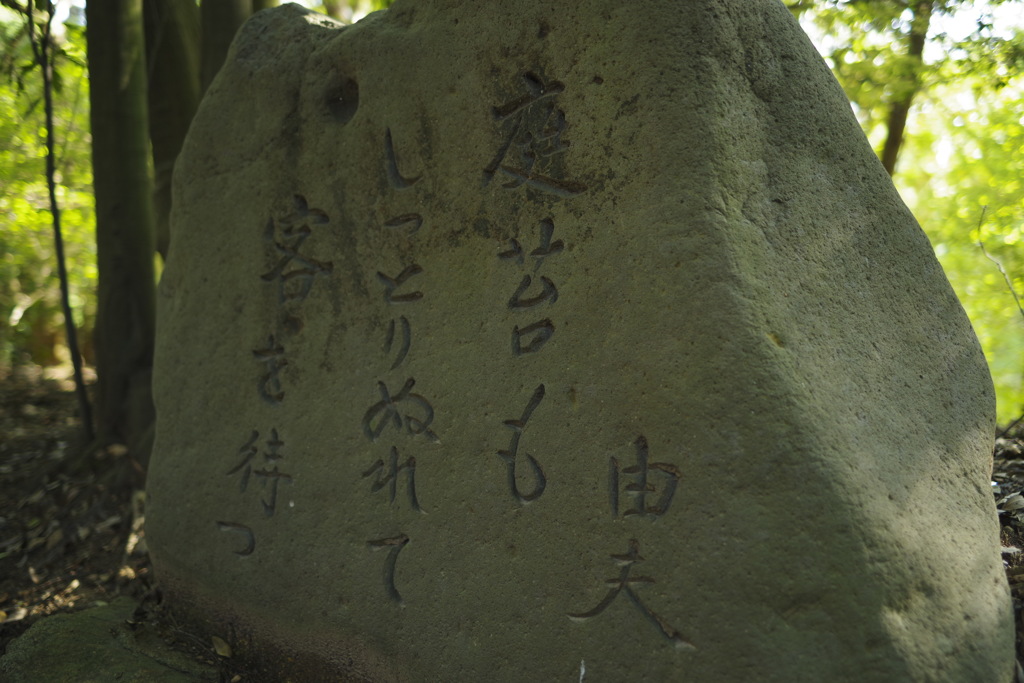 由夫
庭苔も
しっとりぬれて
客を待つ